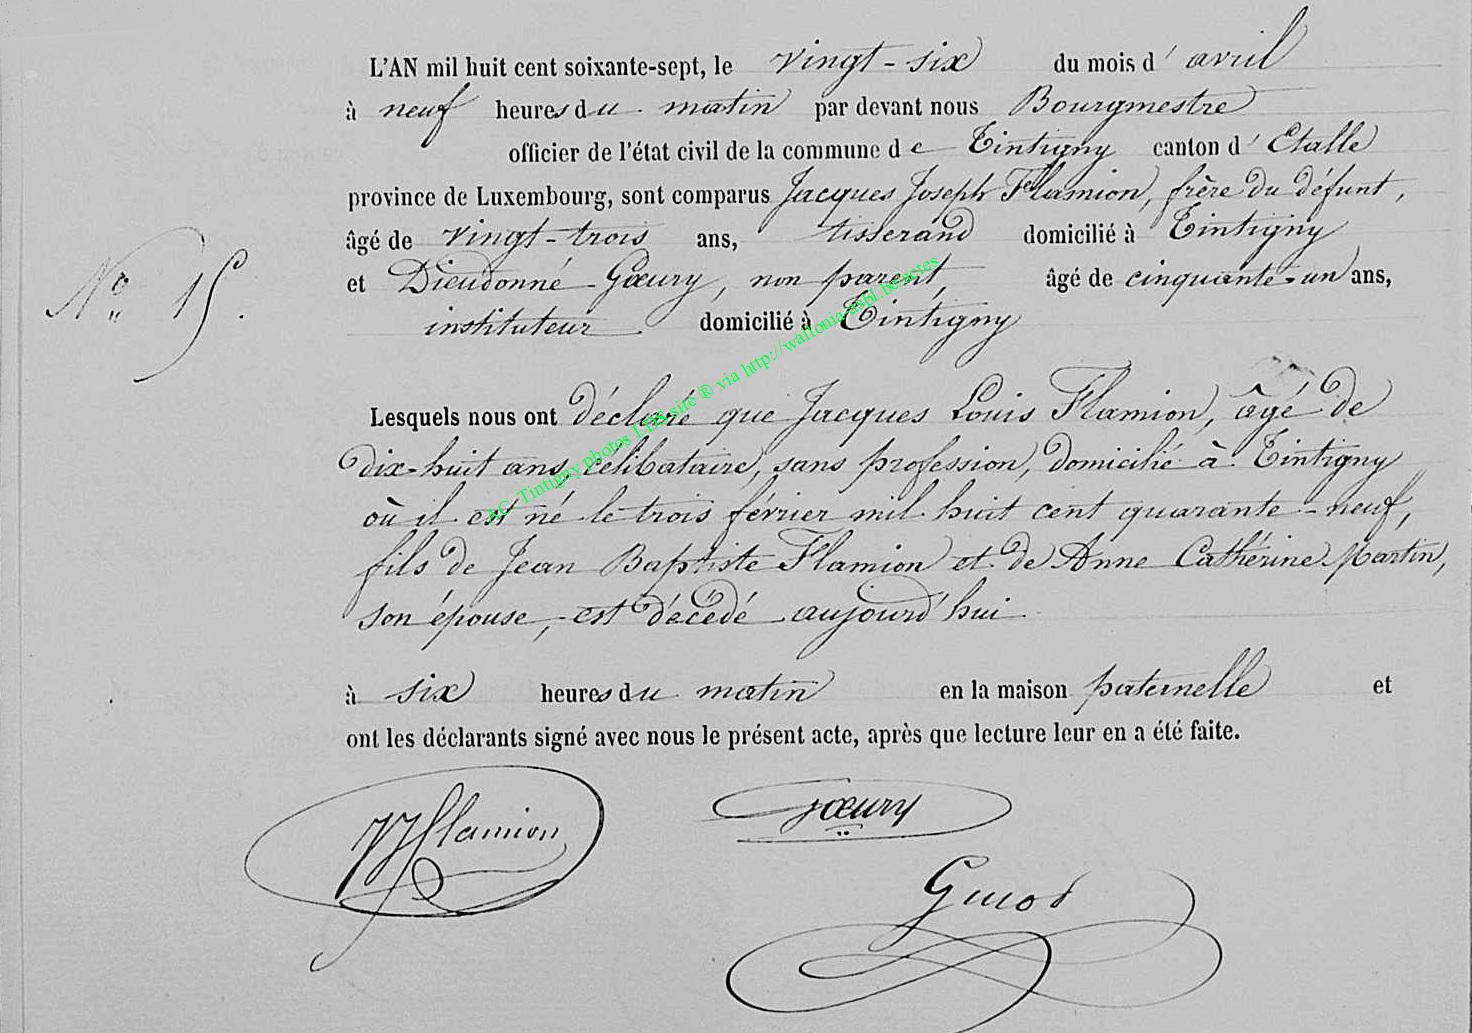 L'AN mil huit cent soixante-sept, le vingt-six du mois d' avril
à neuf heures du matin par devant nous Bourgmestre
officier de l'état civil de la commune de Tintigny canton d' Etalle
province de Luxembourg, sont comparus Jacques Joseph Flamion, frère du défunt,
âgé de vingt-trois ans, tisserand domicilié à Tintigny
et Dieudonné Gœury, non parent, âgé de cinquante-un ans,
instituteur domicilié à Tintigny
N° 15.
Lesquels nous ont déclaré que Jacques Louis Flamion, âgé de
dix-huit ans, célibataire, sans profession, domicilié à Tintigny
où il est né le trois février mil huit cent quarante-neuf,
fils de Jean Baptiste Flamion et de Anne Cathérine Martin,
son épouse, est décédé aujourd'hui
à six heures du matin en la maison paternelle et
ont les déclarants signé avec nous le présent acte, après que lecture leur en a été faite.
JJ Flamion
Gœury
AC Tintigny photos LDS site ® via http://wallonia-asbl.be/actes